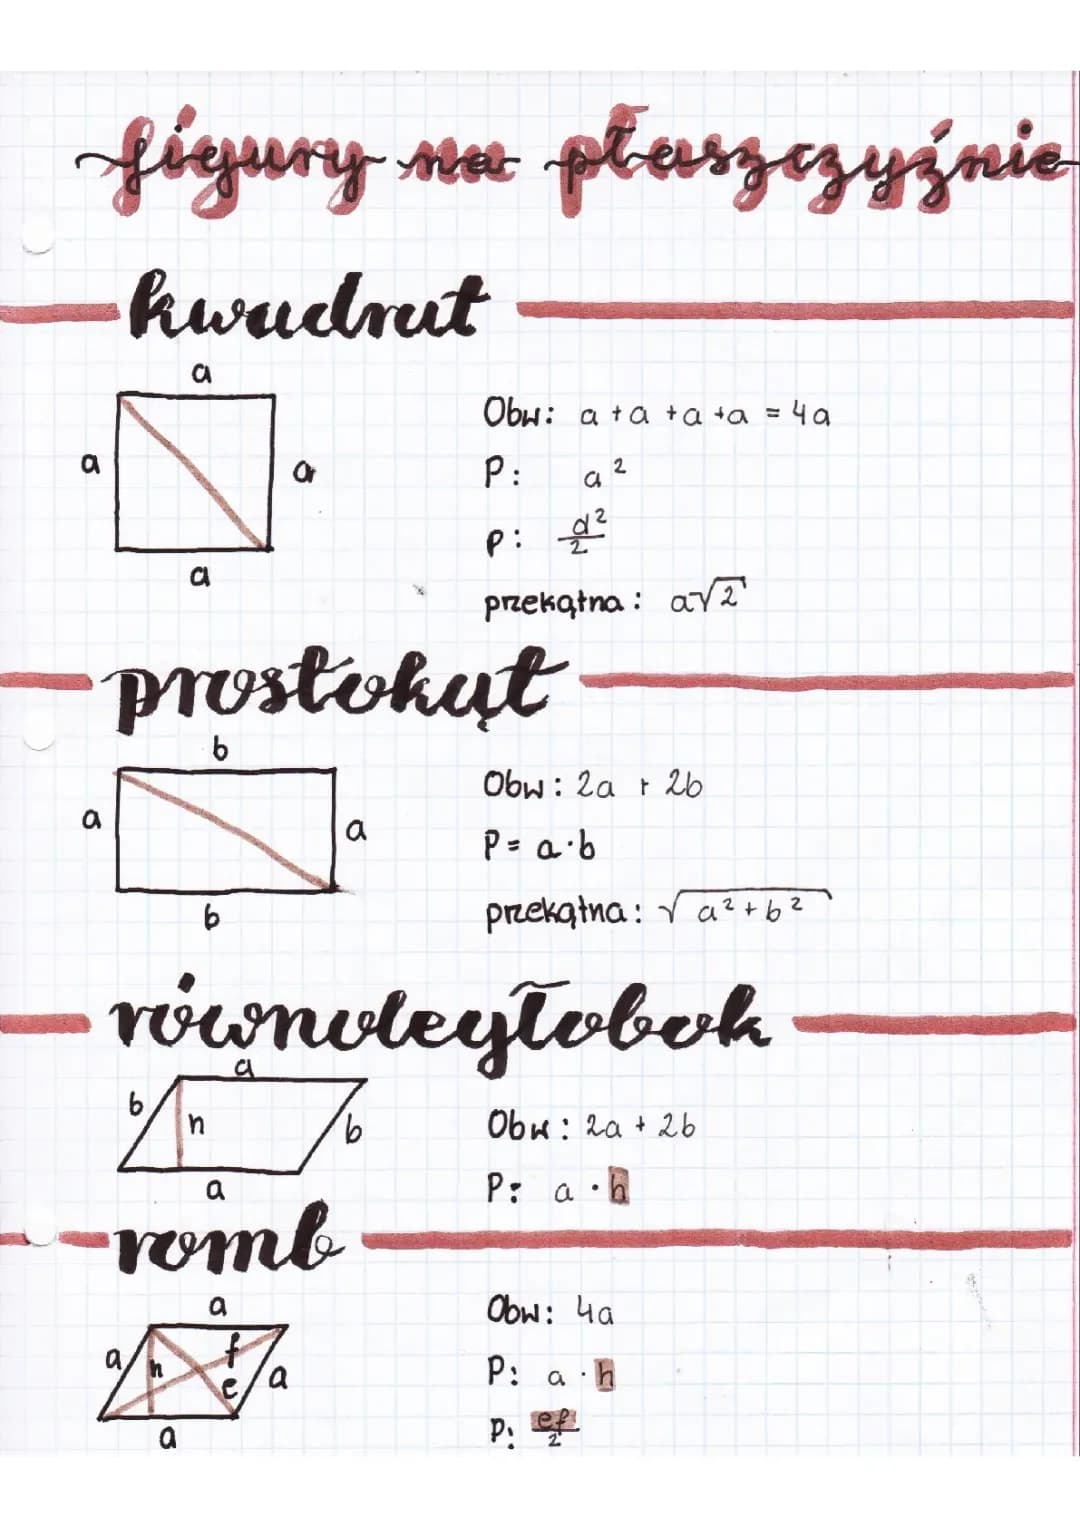 figury na płaszczyźnie
kwadrat
a
a
a
a
Obw: a + a + a + a = 4a
P: a²
P: d²/2
przekątna: a√2
prostokąt
b
a
a
b
Obw: 2a + 2b
P = a · b
przekątna: √a² + b²
równoległobok
a
b
h
b
a
Obw: 2a + 2b
P: a · h
romb
a
a
h
f
e
a
a
Obw: 4a
P: a · h
P: ef/2